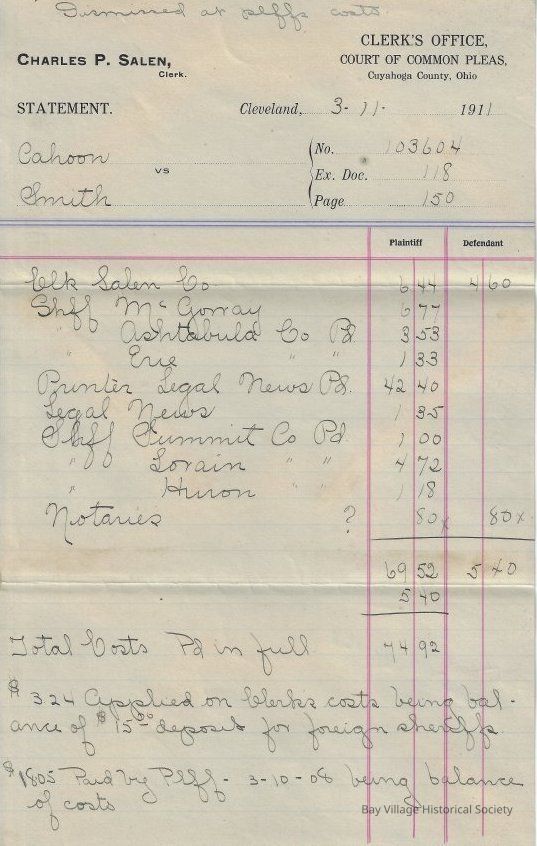 Dismissed at plffs costs.
CHARLES P. SALEN,
Clerk.
CLERK'S OFFICE,
COURT OF COMMON PLEAS,
Cuyahoga County, Ohio
STATEMENT.
Cleveland, 3-11- 1911
Cahoon
vs
Smith
No. 103604
Ex. Doc. 118
Page 150
Plaintiff Defendant
Clk Salen Co 6 44 4 60
Shff McGorray 6 77
" Ashtabula Co Pd 3 53
" Erie " " 1 33
Printer Legal News Pd. 42 40
Legal News 1 35
Shff Summit Co Pd 1 00
" Lorain " " 4 72
" Huron " " 1 18
Notaries ? 80x 80x
69 52 5 40
5 40
Total Costs Pd in full 74 92
$324 applied on Clerks costs being bal-
ance of $15.00 deposit for foreign sheriffs.
$1805 Paid by Plff - 3-10-08 being balance
of costs
Bay Village Historical Society